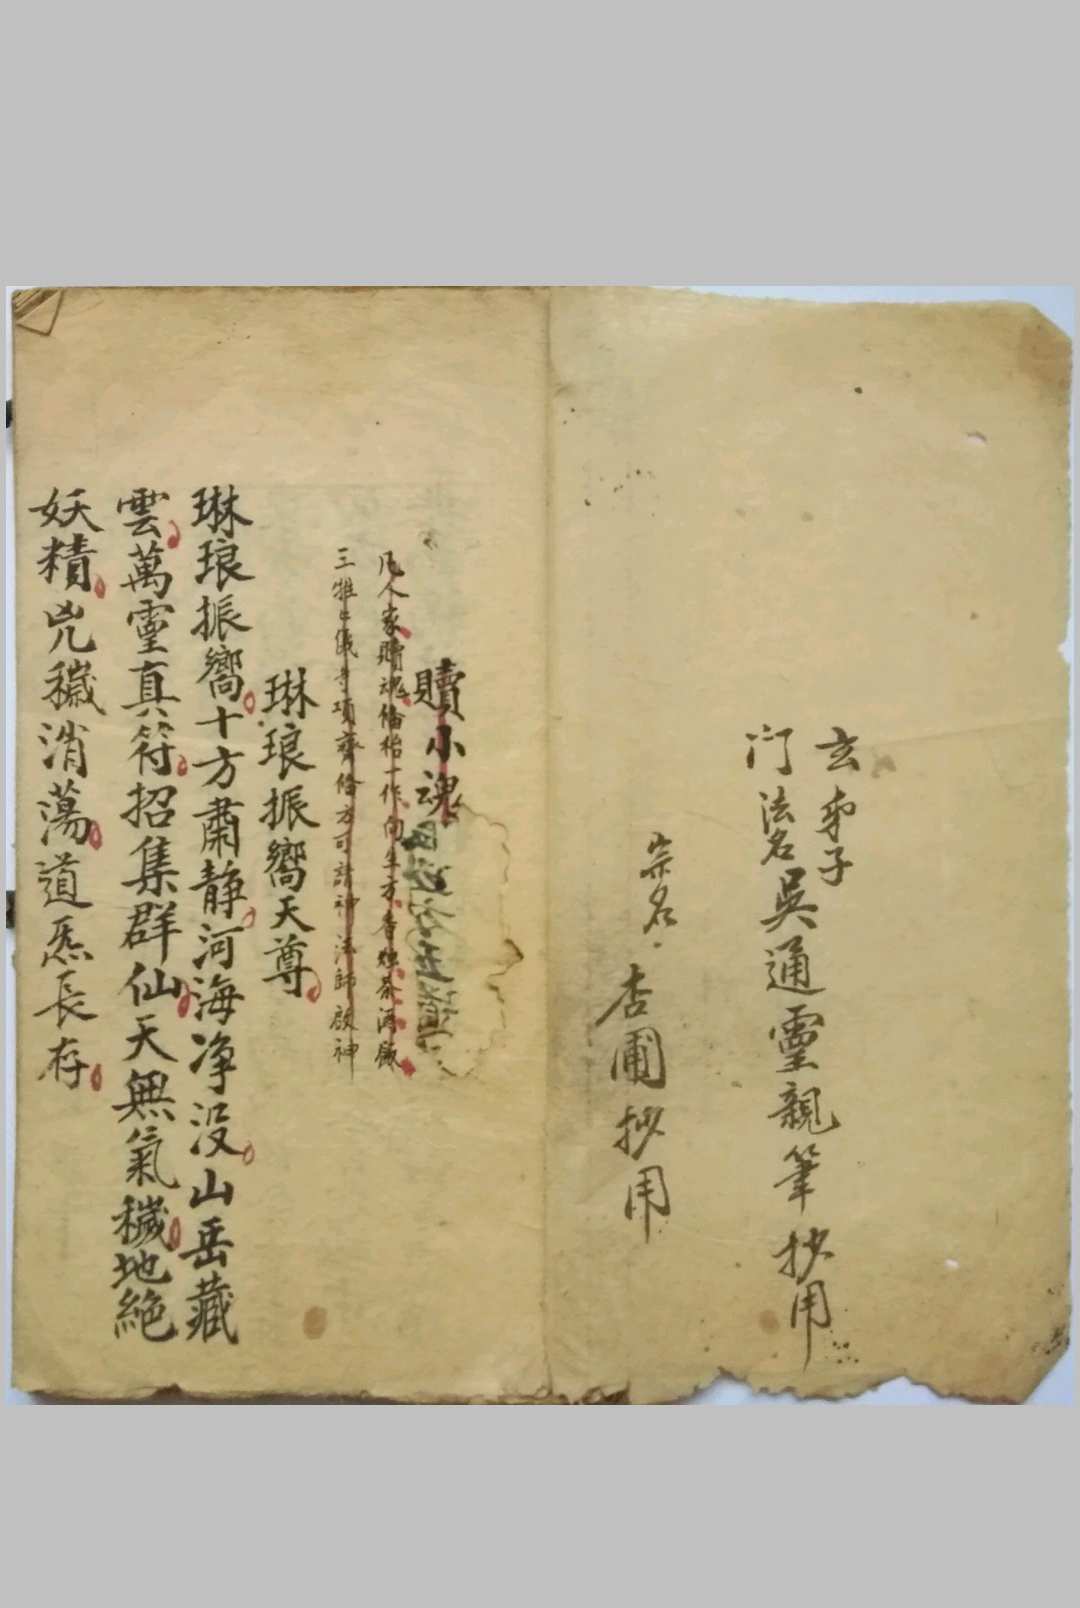 玄弟子
门法名吳通靈親筆抄用
宗名杏圃抄用
贖小魂
凡人家贖魂俻枱一作向生方香燭茶酒飯
三牲礼儀等項齊俻方可請神法師啟神
琳琅振嚮天尊
琳琅振嚮十方肅静河海净没山岳藏
雲萬靈真符招集群仙天無氣穢地絶
妖精兇穢消蕩道炁長存